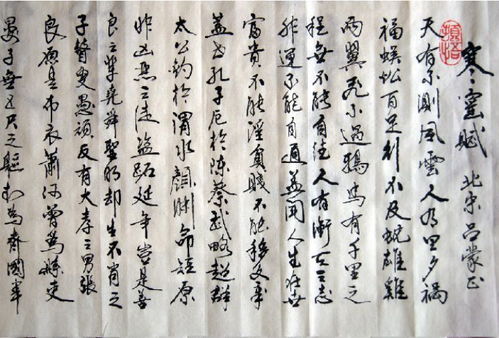 寒窰賦 北宋吕蒙正
天有不測風雲人有旦夕禍
福蜈蚣百足行不及蛇雄雞
兩翼飛不過鴉馬有千里之
程無不能自往人有衝天之志
非運不能自通蓋聞人生在世
富貴不能淫貧賤不能移文章
蓋世孔子厄於陳蔡武略超群
太公釣於渭水顏淵命短原
非凶惡之徒盜跖延年豈是善
良之輩堯舜聖明却生不肖之
子瞽叟愚頑反有大孝之男張
良原是布衣蕭何曾為縣吏
晏子無五尺之軀封為齊國宰